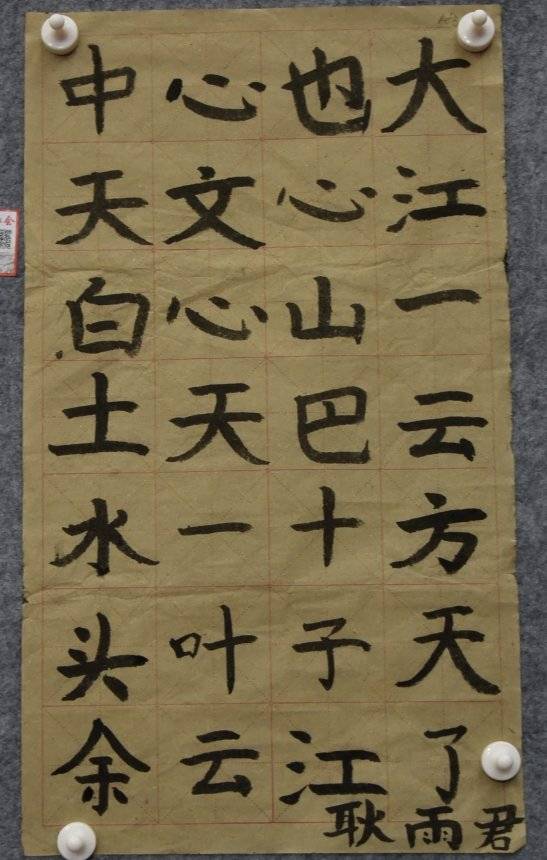 大江一云方天了
也心山巴十子江
心文心天一叶云
中天白土水头余
耿雨君